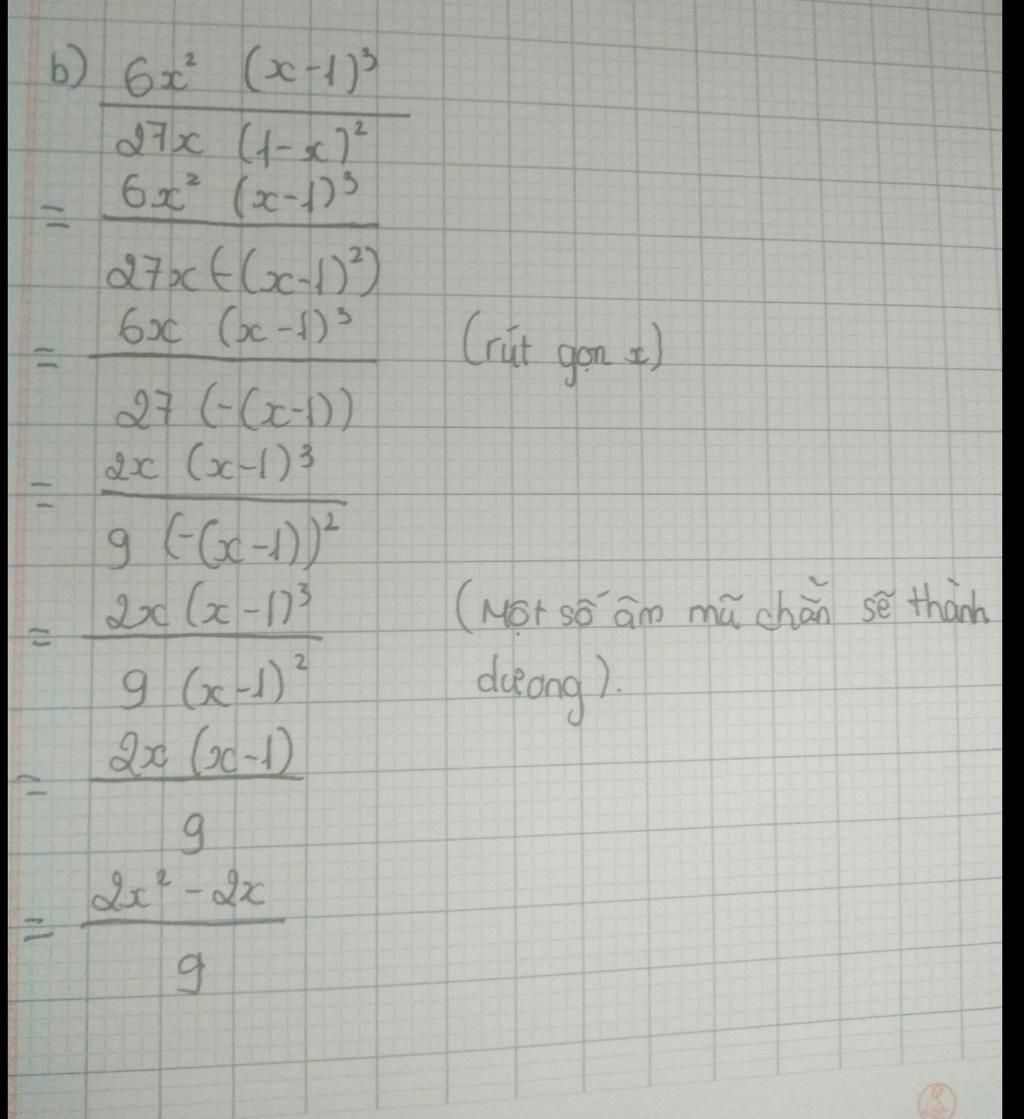 b) 6x² (x-1)³
27x (1-x)²
= 6x² (x-1)³
27x(-(x-1)²)
= 6x (x-1)³ (rút gọn x)
27 (-(x-1))
= 2x (x-1)³
9 (-(x-1))²
= 2x (x-1)³ (Một số âm mũ chẵn sẽ thành
9 (x-1)² dương).
= 2x (x-1)
9
= 2x² - 2x
9